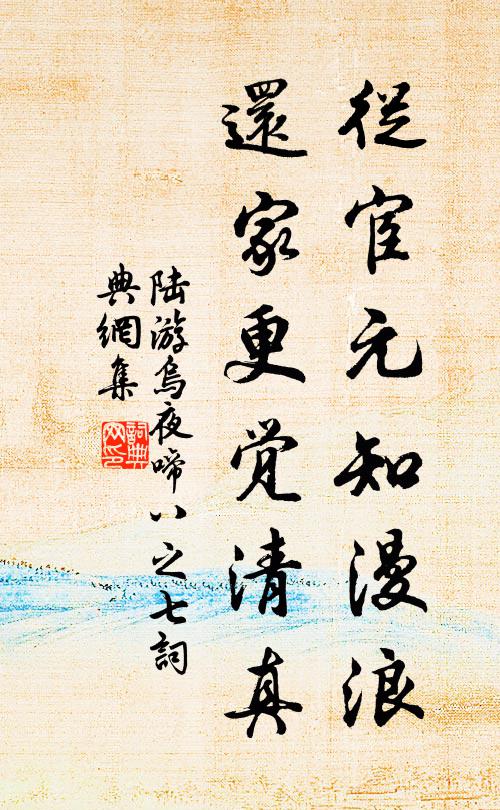 從宦元知漫浪
還家更觉清真
陆游烏夜啼八之七詞
典網集
詞典
文化